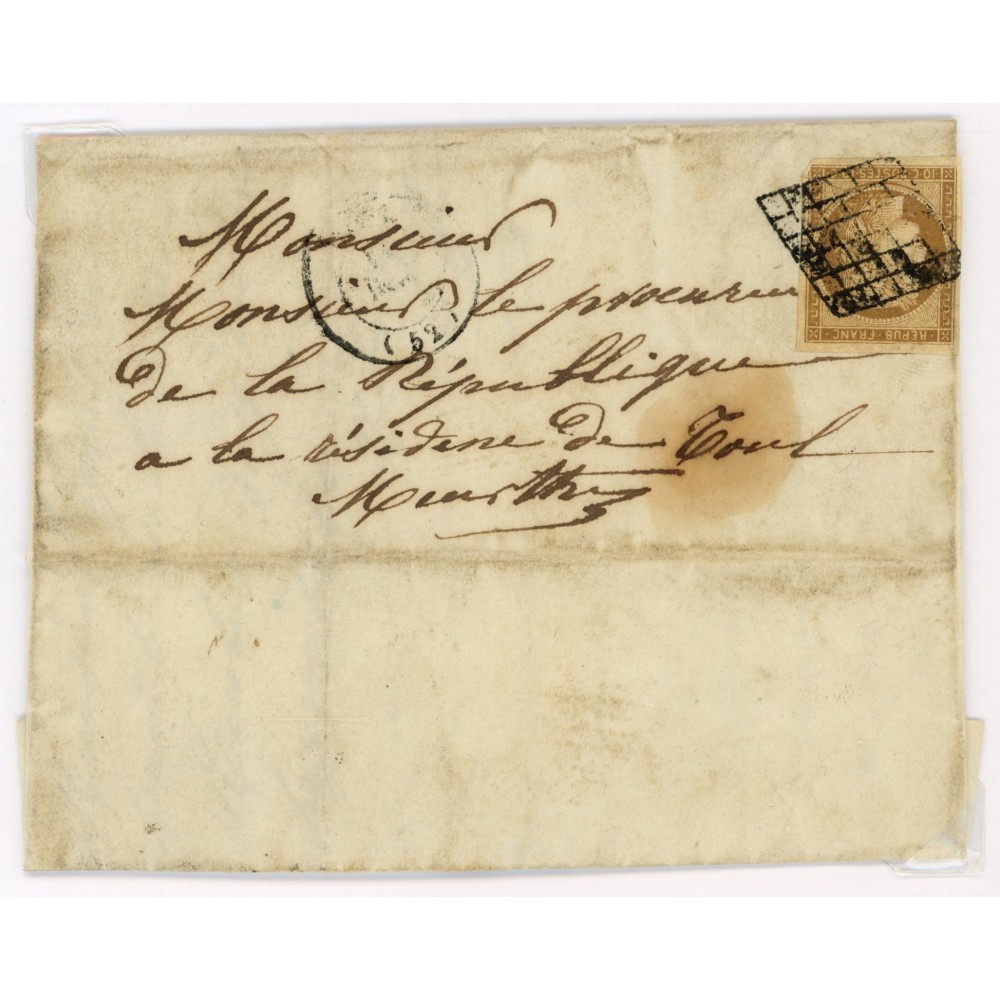 Monsieur
Monsieur le procureu
de la République
a la résidene de Toul
Meurthe
(52)
10 c. POSTES
REPUB. FRANC.